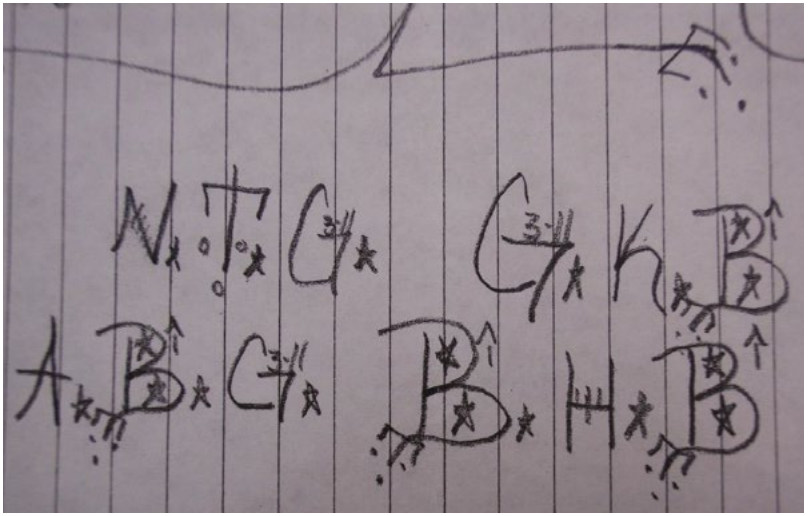 N.T.G. G.K.B
A.B.G. B.H.B